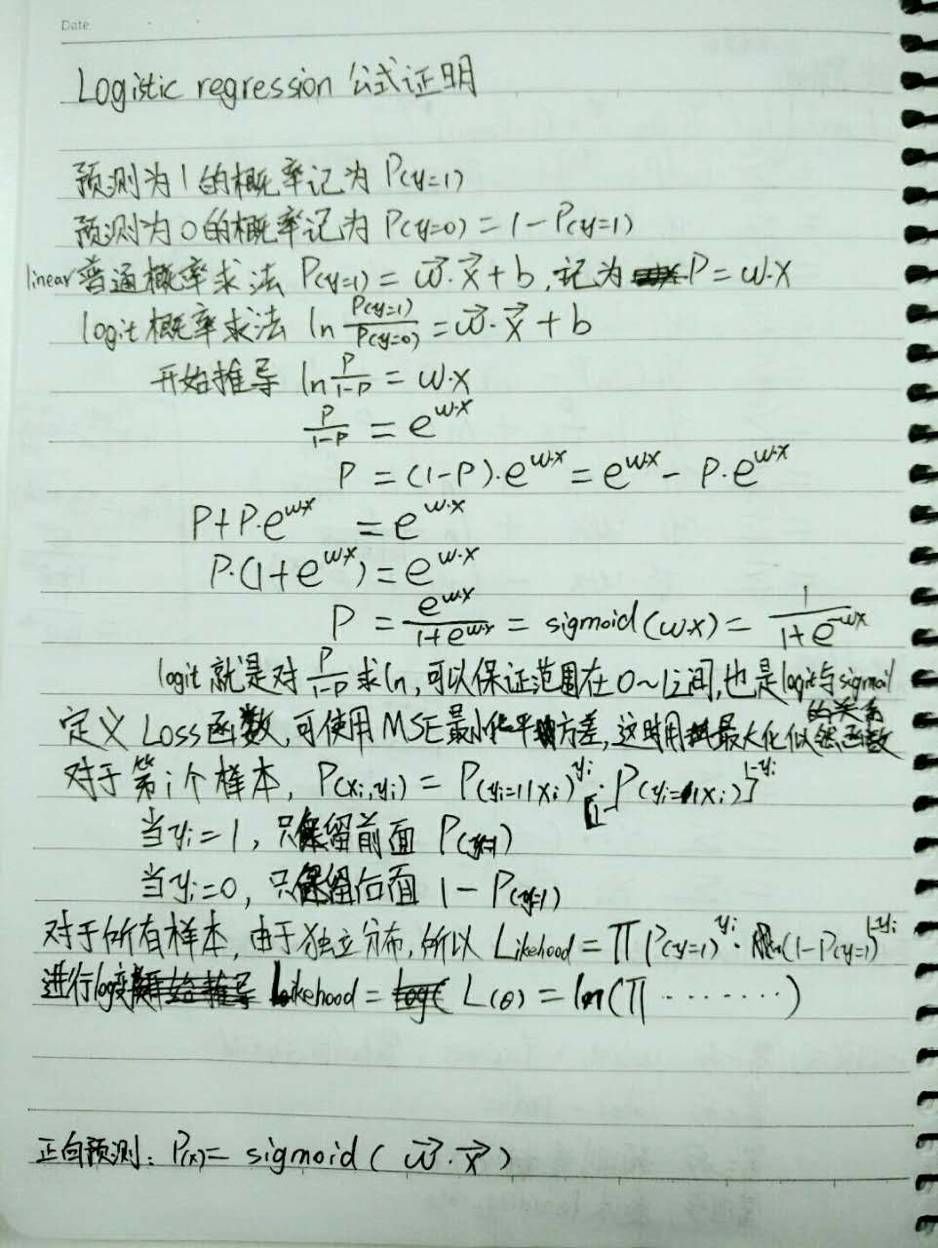 Date
Logistic regression 公式证明
预测为1的概率记为 P(y=1)
预测为0的概率记为 P(y=0) = 1 - P(y=1)
linear 普通概率求法 P(y=1) = w⃗·x⃗ + b, 记为 P = w·x
logit 概率求法 ln P(y=1)/P(y=0) = w⃗·x⃗ + b
开始推导 ln P/1-P = w·x
P/1-P = e^w·x
P = (1-P)·e^w·x = e^w·x - P·e^w·x
P+P·e^w·x = e^w·x
P·(1+e^w·x) = e^w·x
P = e^w·x/1+e^w·x = sigmoid(wx) = 1/1+e^-wx
logit 就是对 P/1-P 求ln, 可以保证范围在0~1之间, 也是logit与sigmoid的关系
定义 Loss函数, 可使用 MSE 最小化平均方差, 这时用最大化似然函数
对于第i个样本, P(xi,yi) = P(yi=1|xi)^yi·[1-P(yi=1|xi)]^1-yi
当yi=1, 只保留前面 P(y=1)
当yi=0, 只保留后面 1 - P(y=1)
对于所有样本, 由于独立分布, 所以 Likehood = ∏ P(y=1)^yi·(1-P(y=1))^1-yi
进行log变换 Likehood = L(θ) = ln(∏ ········)
正向预测: P(x) = sigmoid( w⃗·x⃗ )